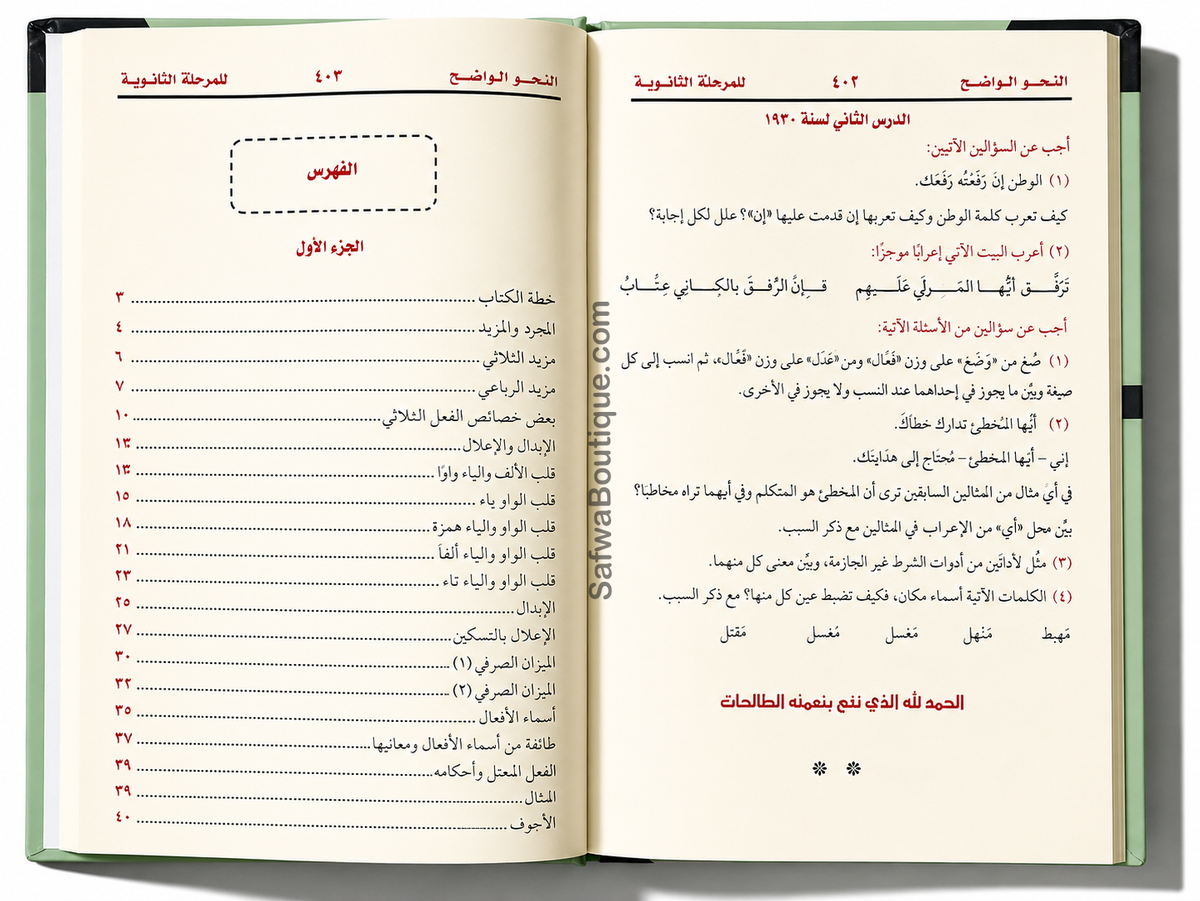 النحو الواضح ٤٠٢ للمرحلة الثانوية
الدرس الثاني لسنة ١٩٣٠
أجب عن السؤالين الآتيين:
(١) الوطن إن رَفَعْتُه رَفَعَك.
كيف تعرب كلمة الوطن وكيف تعربها إن قدمت عليها «إن»؟ علل لكل إجابة؟
(٢) أعرب البيت الآتي إعرابًا موجزًا:
تَرَفَّق أيُّها المَرلَي عَلَيهِم فإنَّ الرِّفقَ بالجاني عِتَابُ
أجب عن سؤالين من الأسئلة الآتية:
(١) صُغ من «وَضَعَ» على وزن «فَعَّال» ومن«عَدَل» على وزن «فَعَّال»، ثم انسب إلى كل
صيغة وبيَّن ما يجوز في إحداهما عند النسب ولا يجوز في الأخرى.
(٢) أيُّها المخطئ تدارك خطأكَ.
إني – أيّها المخطئ – مُحتَاج إلى هدَايتَك.
في أيّ مثال من المثالين السابقين ترى أن المخطئ هو المتكلم وفي أيهما تراه مخاطبًا؟
بيِّن محل «أي» من الإعراب في المثالين مع ذكر السبب.
(٣) مثُل لأداتَين من أدوات الشرط غير الجازمة، وبيِّن معنى كل منهما.
(٤) الكلمات الآتية أسماء مكان، فكيف تضبط عين كل منها؟ مع ذكر السبب.
مَهبط مَنْهل مَغسل مُغسل مَقتل
الحمد لله الذي بنعمته
النحو الواضح ٤٠٣ للمرحلة الثانوية
الفهرس
الجزء الأول
خطة الكتاب ٣
المجرد والمزيد ٤
مزيد الثلاثي ٦
مزيد الرباعي ٧
بعض خصائص الفعل الثلاثي ١٠
الإبدال والإعلال ١٣
قلب الألف والياء واوًا ١٣
قلب الواو ياء ١٥
قلب الواو والياء همزة ١٨
قلب الواو والياء ألفاً ٢١
قلب الواو والياء تاء ٢٣
الإبدال ٢٥
الإعلال بالتسكين ٢٧
الميزان الصرفي (١) ٣٠
الميزان الصرفي (٢) ٣٢
أسماء الأفعال ٣٥
طائفة من أسماء الأفعال ومعانيها ٣٧
الفعل المعتل وأحكامه ٣٩
المثال ٣٩
الأجوف ٤٠
SafwaBoutique.com